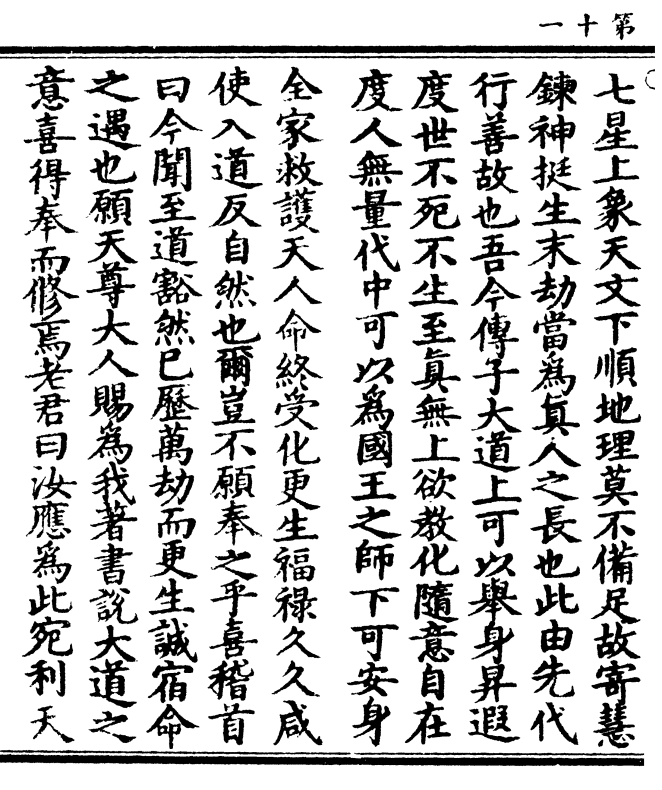 第十一
七星上象天文下順地理莫不備足故寄慧
鍊神挺生末劫當爲真人之長也此由先代
行善故也吾今傳子大道上可以舉身昇遐
度世不死不生至真無上欲教化隨意自在
度人無量代中可以爲國王之師下可安身
全家救護天人命終受化更生福祿久久咸
使入道反自然也爾豈不願奉之乎喜稽首
曰今聞至道豁然已歷萬劫而更生誠宿命
之遇也願天尊大人賜爲我著書說大道之
意喜得奉而修焉老君曰汝應爲此宛利天